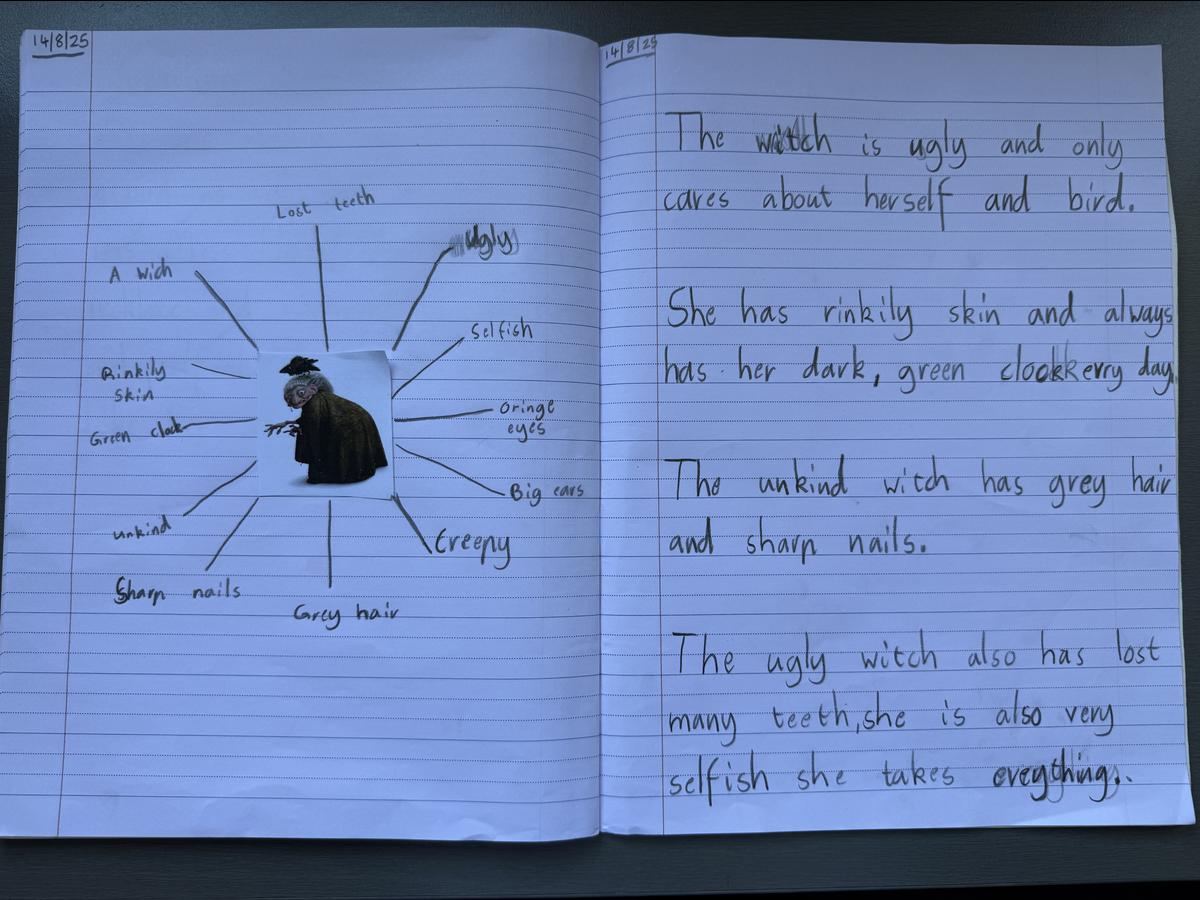 14/8/25
Lost teeth
Ugly
A wich
Selfish
Rinkily
skin
Oringe
eyes
Green clock
Big ears
unkind
Creepy
Sharp nails
Grey hair
14/8/25
The witch is ugly and only
cares about herself and bird.
She has rinkily skin and always
has her dark, green clookkerry day.
The unkind witch has grey hair
and sharp nails.
The ugly witch also has lost
many teeth, she is also very
selfish she takes eveything..